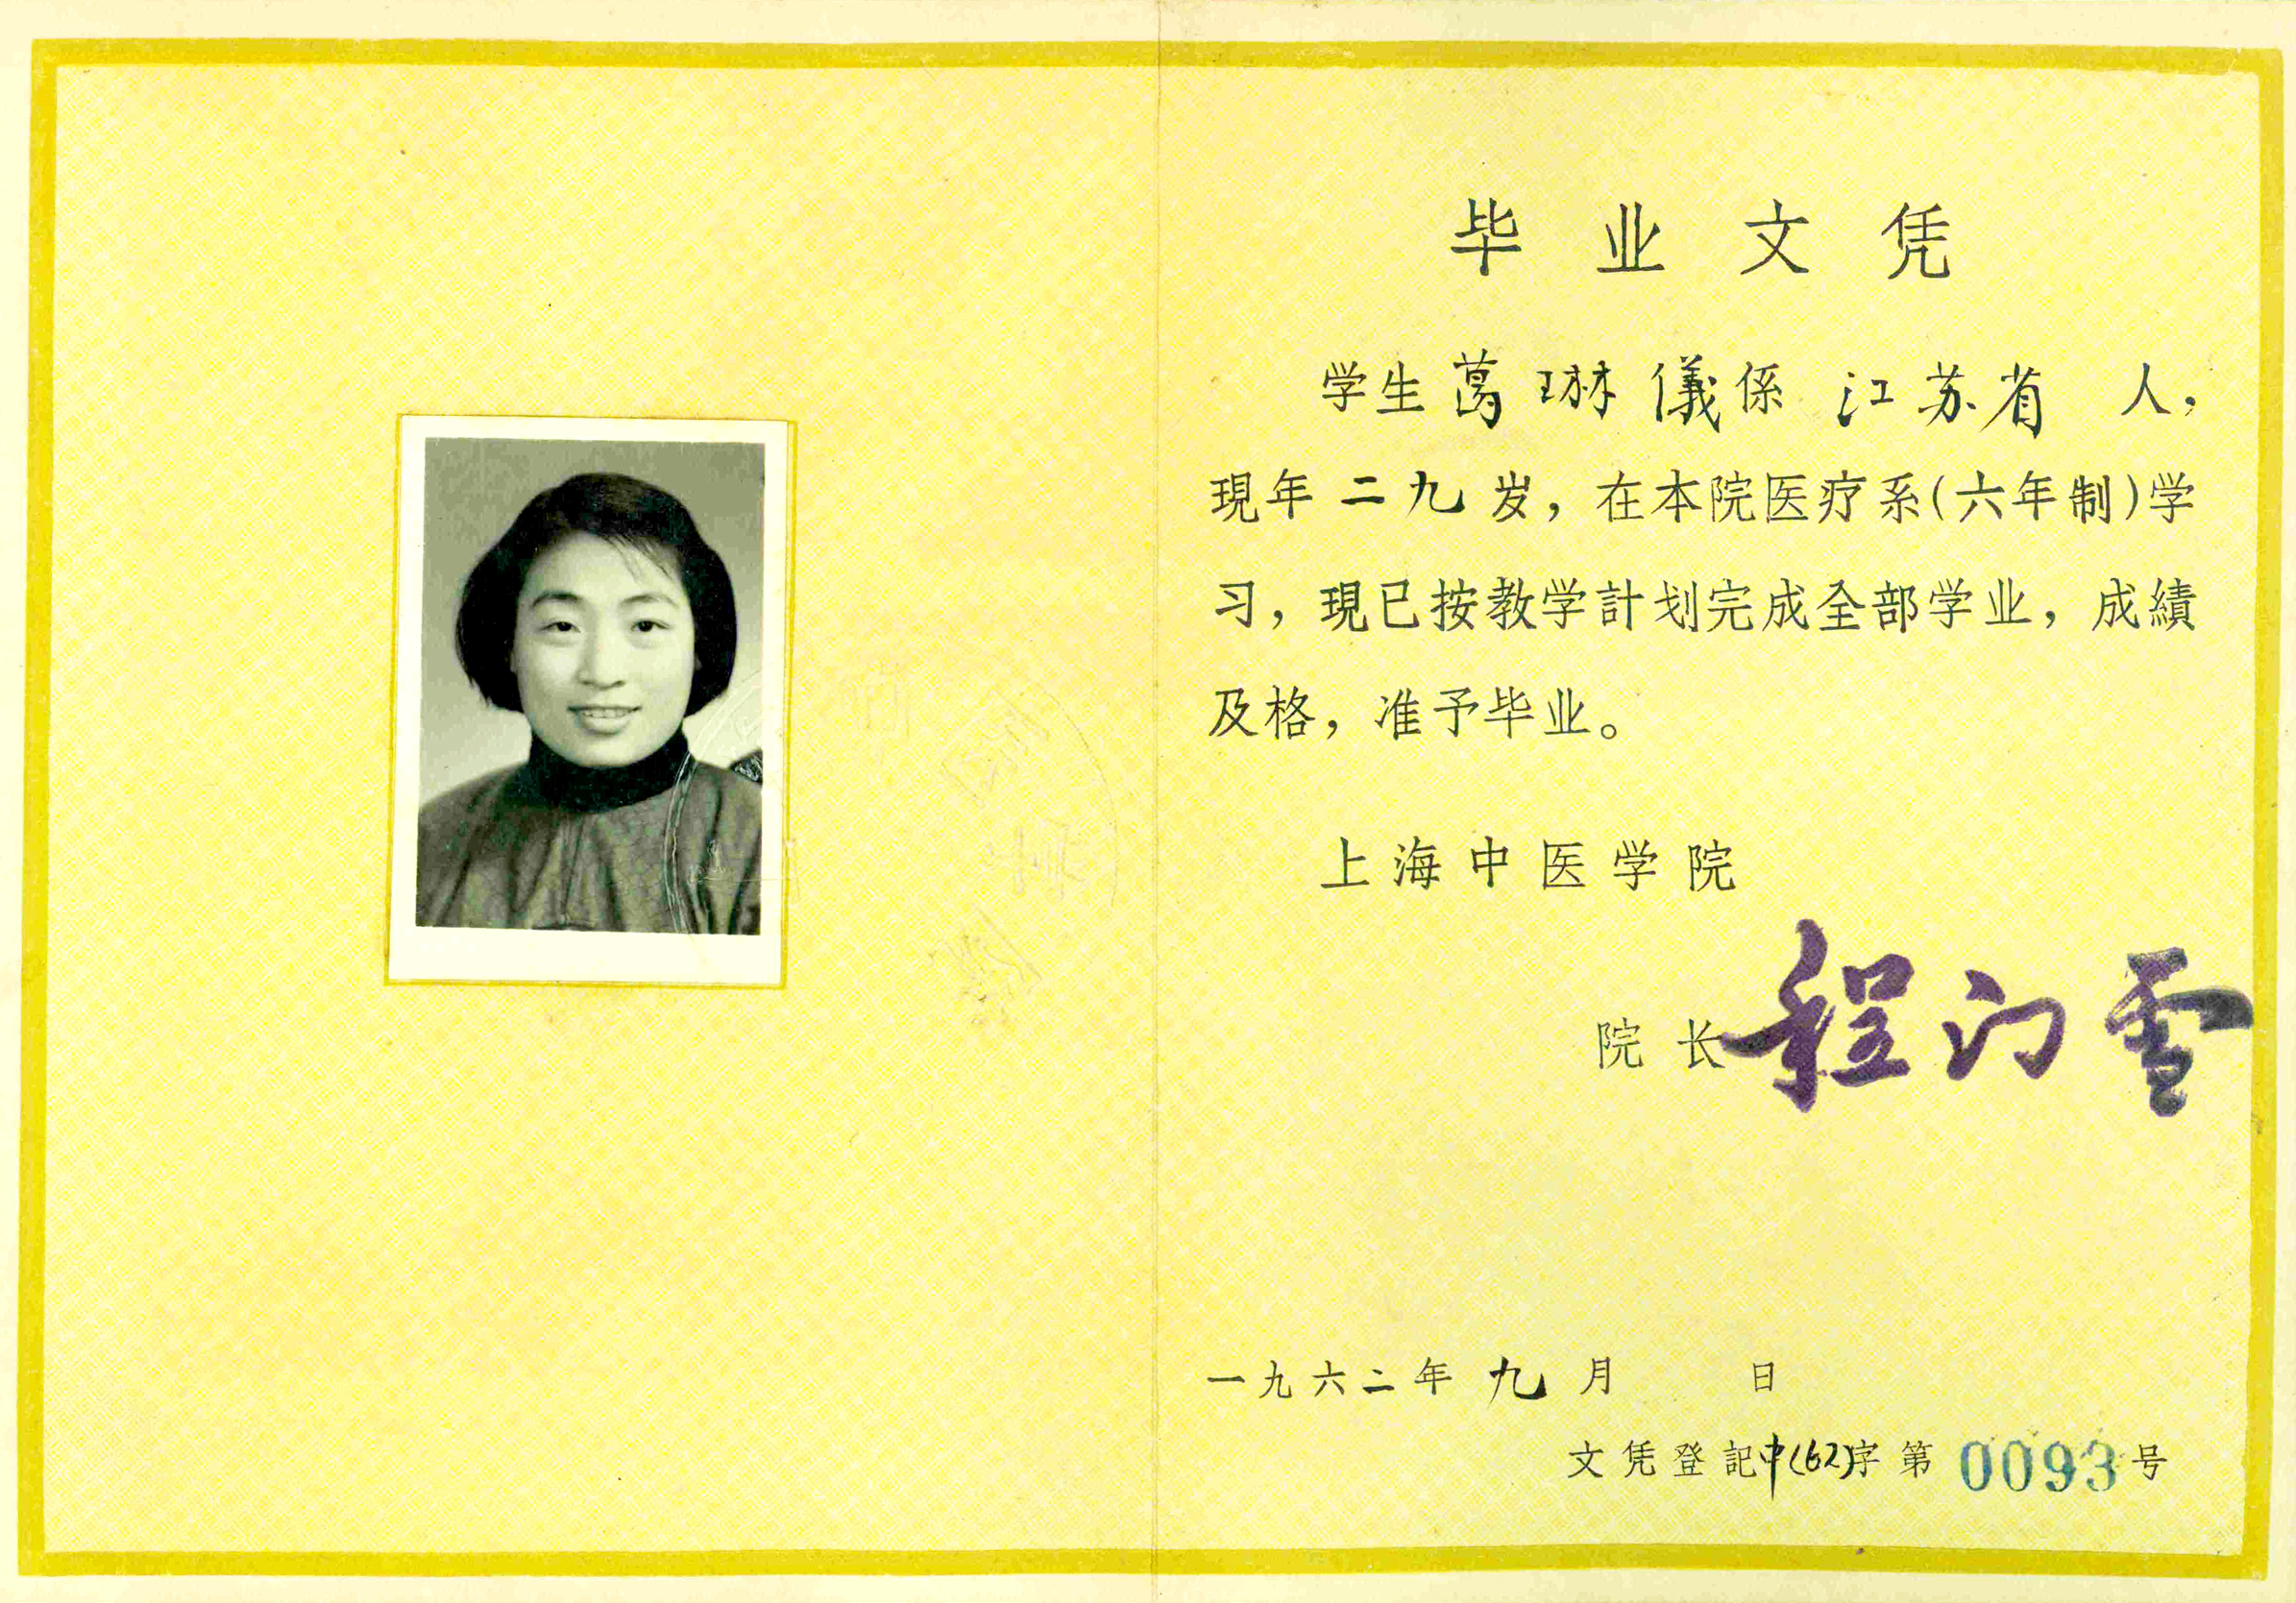 毕业文凭
学生葛琳儀係江苏省人，
現年二九岁，在本院医疗系(六年制)学
习，現已按教学計划完成全部学业，成績
及格，准予毕业。
上海中医学院
院长程门雪
一九六二年九月 日
文凭登記中(62)字第0093号